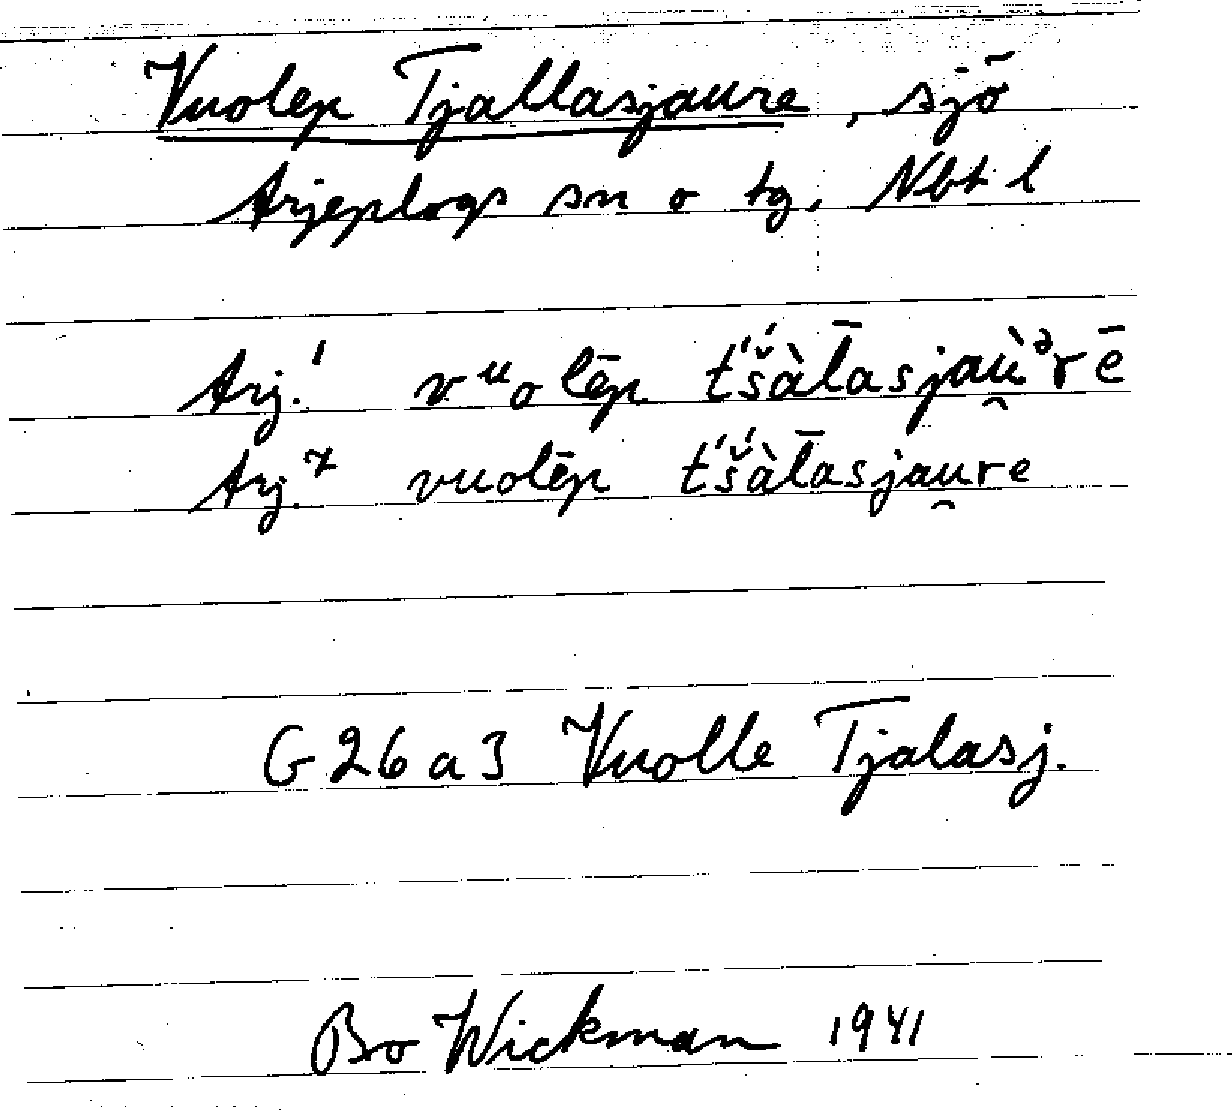 Vuolep Tjallasjaure, sjö
Arjeplogs sn o tg, Nbt l
Arj.¹ vᵘolēp t́š́àl̄asjaù̯ᵊrē
Arj.ˣ vuolēp t́š́àl̄asjau̯re
G 26 a 3 Vuolle Tjalasj.
Bo Wickman 1941